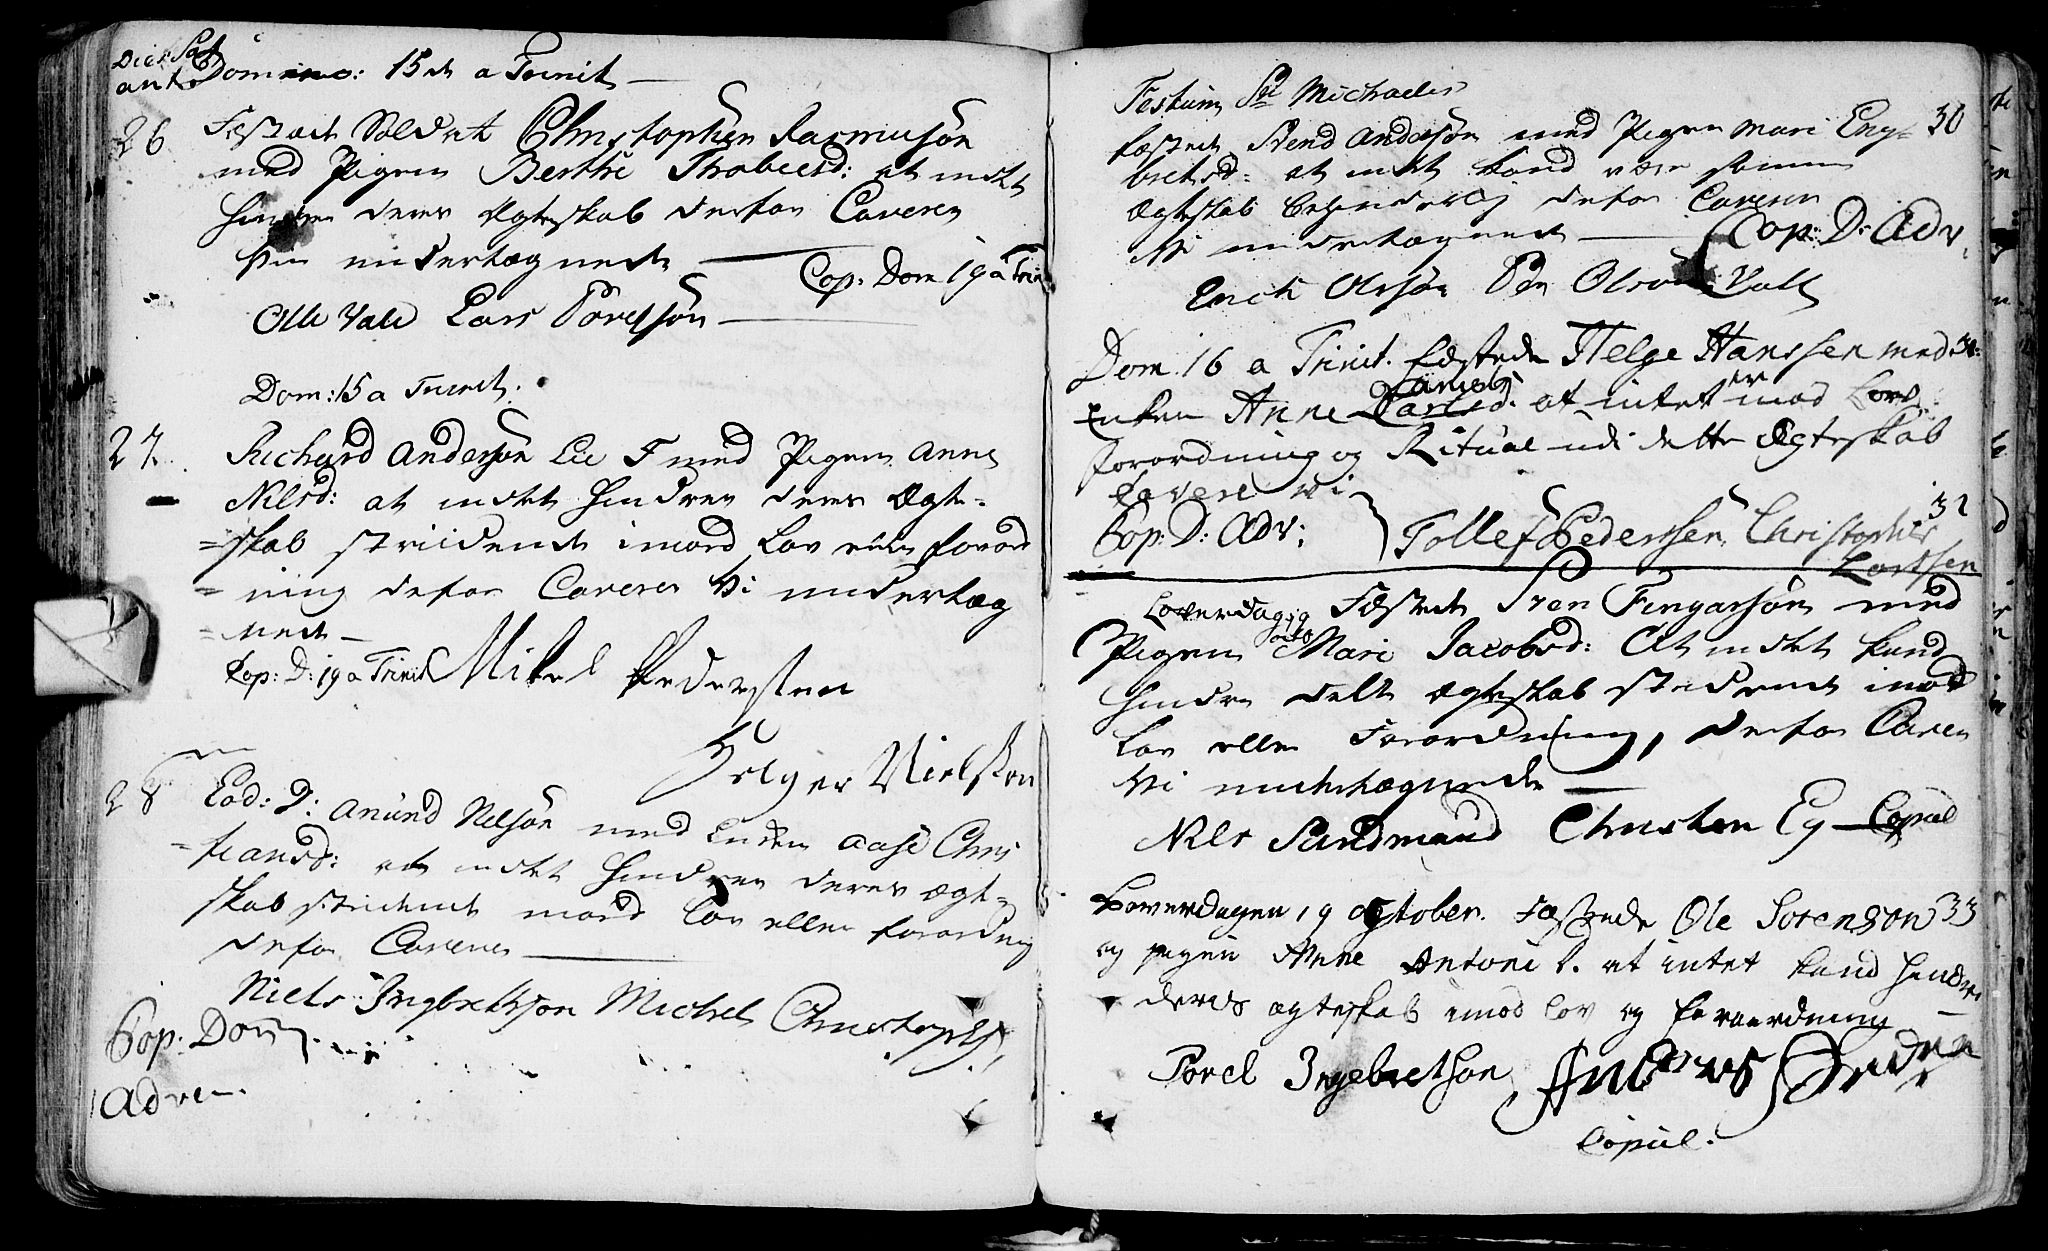 Die Sat
ante Dom: 15de a Trinit
26 Fæstet Soldat Christopher Rasmusøn
med Pigen Berthe Thrabiesd: at indtet
hindrer deres Ægteskab derfor Caverer
Vii undertægnede — Cop: Dom 19 a Trin
Olle Vale Lars Povelsøn —
Dom: 15 a Trinit.
27 Richard Andersøn Lie F med Pigen Anne
Nilsd: at indtet hindrer deres Ægte-
=skab striidende imod Lov eller forord
=ning derfor Caverer Vi undertæg
=nede —
Cop: D: 19 a Trinit Mikel Pedersten
Holger Nielsten
28 Eod: D: Anund Nelsøn med Enken Aase Chris
=tiansd: at indtet hindrer deres Ægte-
skab stridende imod Lov eller forordning
derfor Caverer —
Niels Ingbretson Michel Christophs.
Cop: Dom
1 Adven.
Festum St Michaelis
fæstet Svend Andersøn med Pigen Mari Eng= 30
bretsd: at intet kand være samme
Ægteskab behinderlig derfor Caverer
Vi undertægnede — Cop: D: Adv.
Erick Olsøn Per Olsøn Valle
Dom. 16 a Trinit. fæstede Helge Hanssen med
Enken Anne Larsd. Daniels at intet er mod Lovs
forordning og Ritual udi dette Ægteskab
Cavere vi
Cop: D: Adv: Tollef Pederssen, Christopher 32
Lartsen
Løverdag 19 Fæstet Sven Fingarsøn med
Pigen Mari Jacobsd: At indtet kand
hindre dette Ægteskab stridende imod
Lov eller Forordning, derfor Caverer
Vi undertægnede —
Nils Sandmand Christen Eg — Copul
Løverdagen 19 October. Fæstede Ole Sorenson 33
og pigen Anne Antoni D. at intet kand hindre
deres ægteskab imod lov og foraardning —
Povel Ingebretson Anders
Copul.